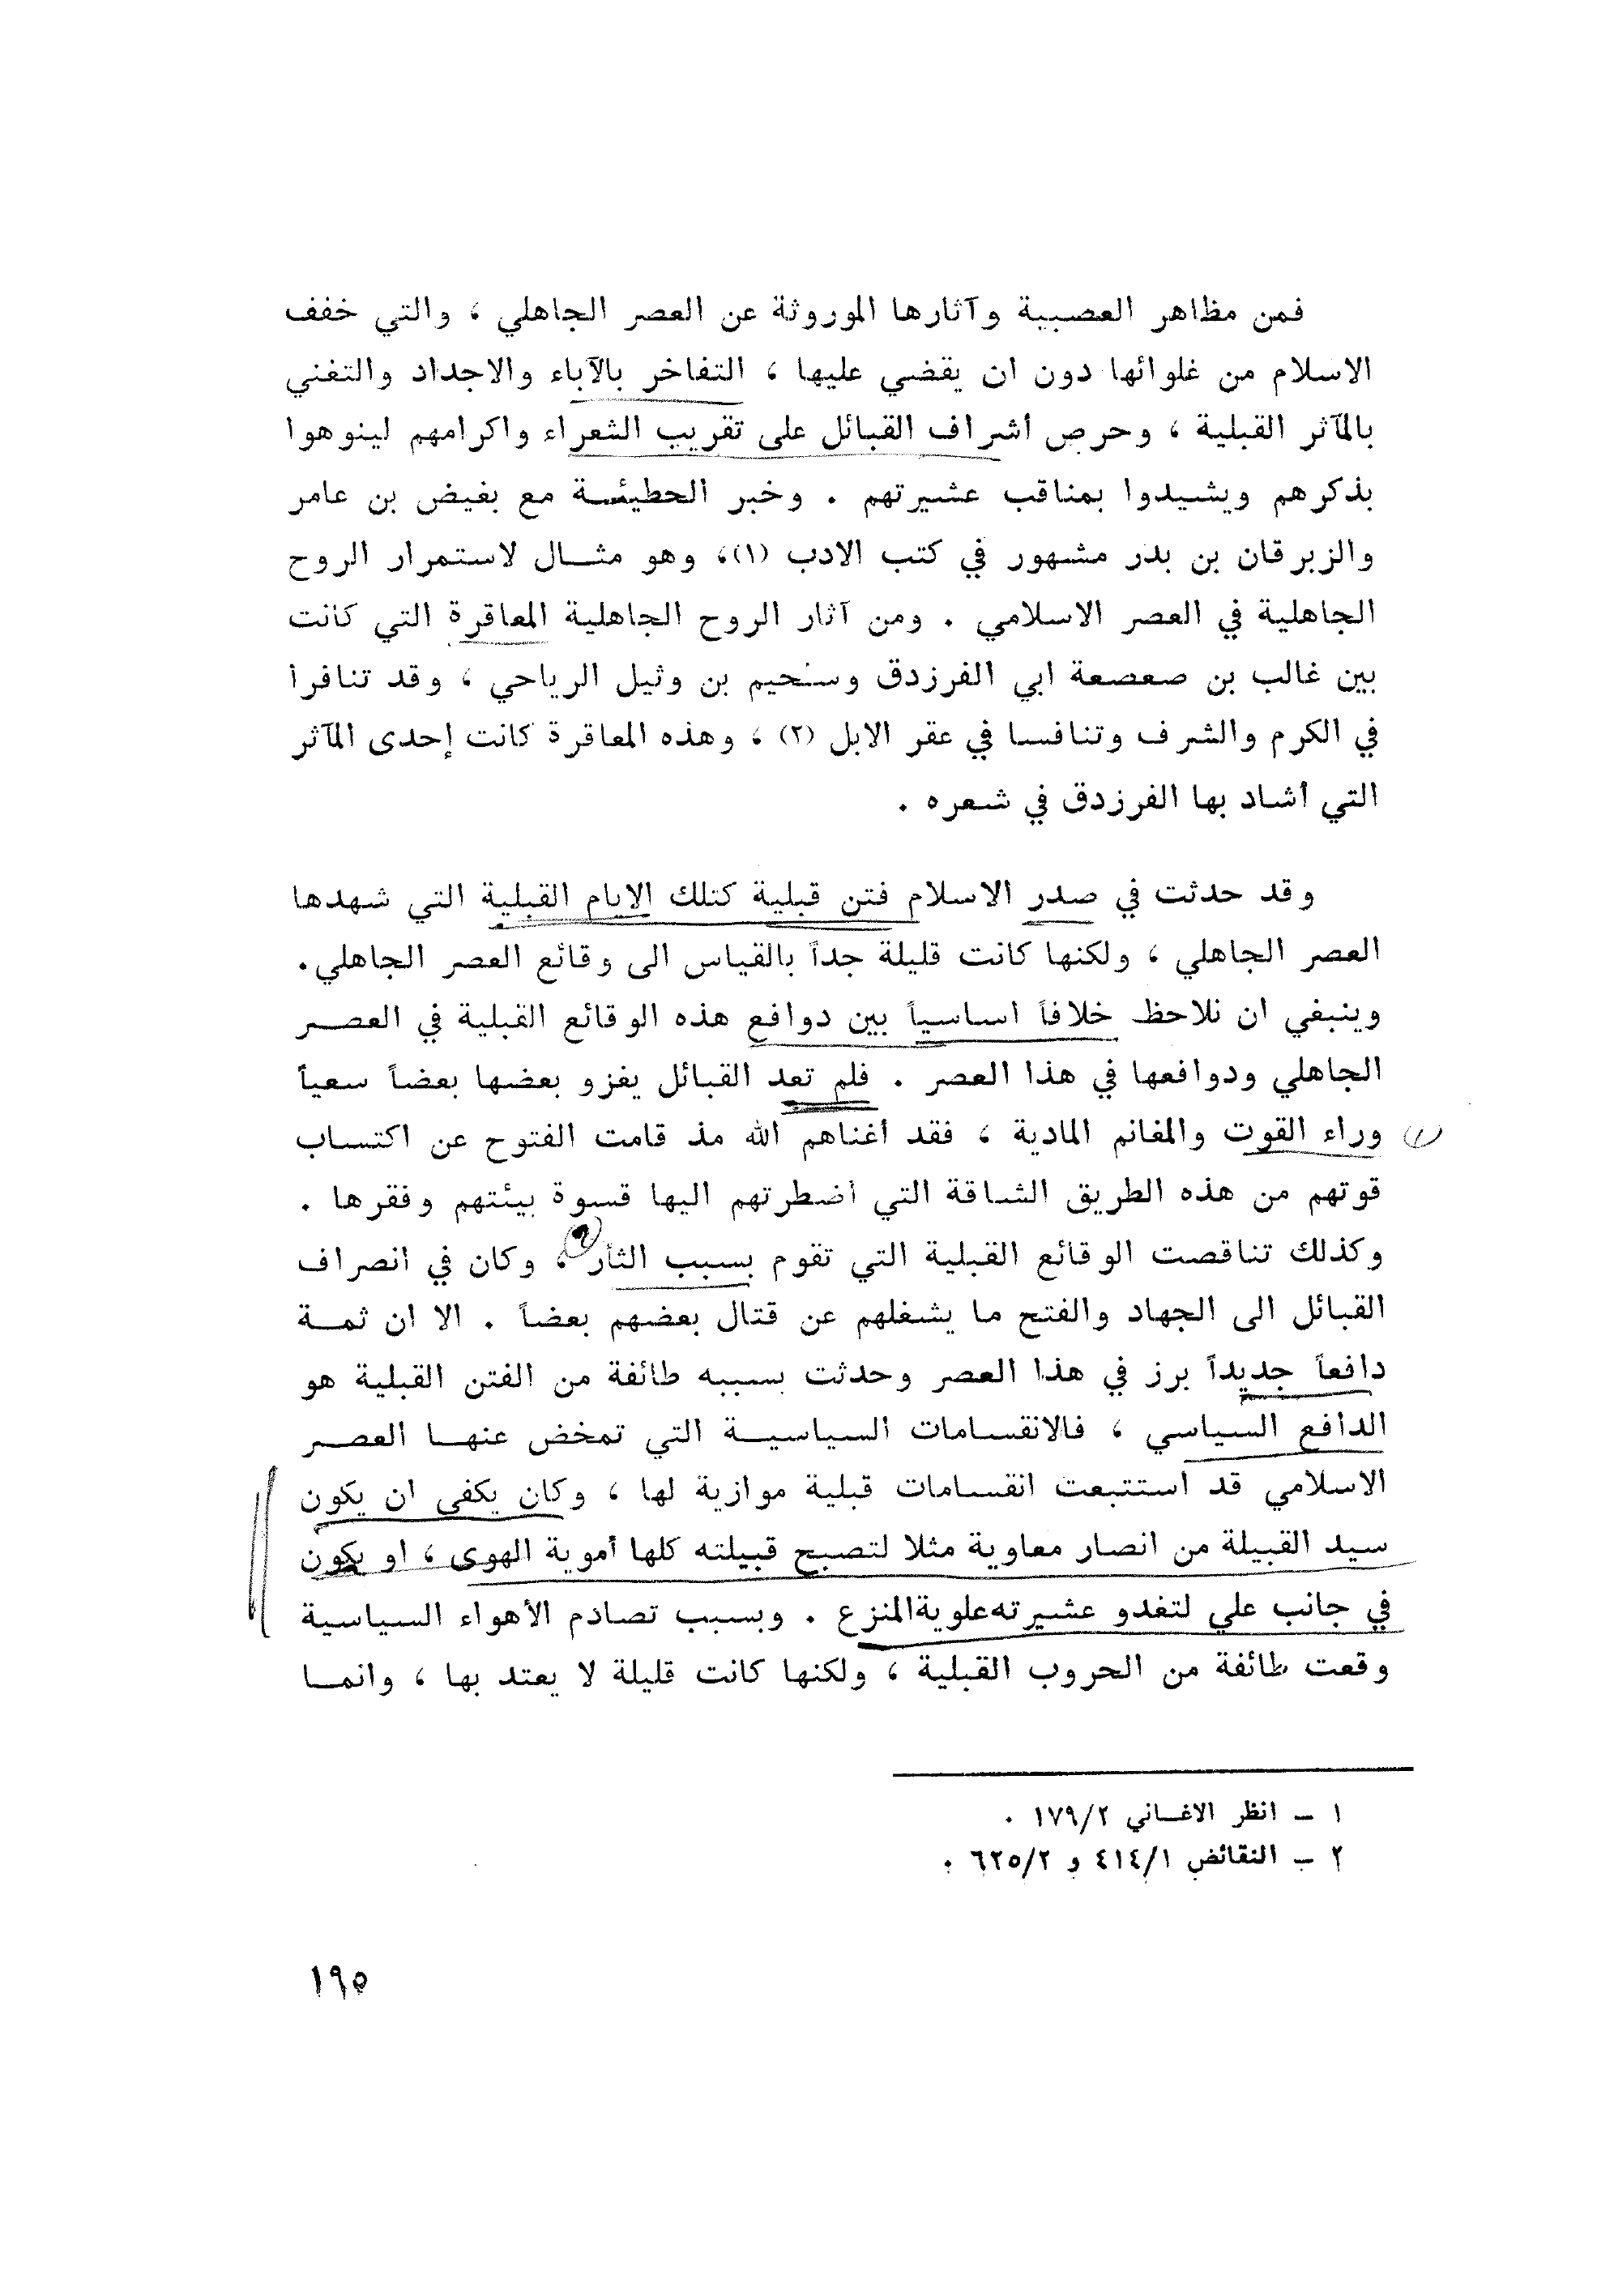 فمن مظاهر العصبية وآثارها الموروثة عن العصر الجاهلي ، والتي خفف
الاسلام من غلوائها دون ان يقضي عليها ، التفاخر بالآباء والاجداد والتغني
بالمآثر القبلية ، وحرص أشراف القبائل على تقريب الشعراء واكرامهم لينوهوا
بذكرهم ويشيدوا بمناقب عشيرتهم . وخبر الحطيئة مع بغيض بن عامر
والزبرقان بن بدر مشهور في كتب الادب (١)، وهو مثال لاستمرار الروح
الجاهلية في العصر الاسلامي . ومن آثار الروح الجاهلية المعاقرة التي كانت
بين غالب بن صعصعة ابي الفرزدق وسحيم بن وثيل الرياحي ، وقد تنافرا
في الكرم والشرف وتنافسا في عقر الابل (٢) ، وهذه المعاقرة كانت إحدى المآثر
التي أشاد بها الفرزدق في شعره .
وقد حدثت في صدر الاسلام فتن قبلية كتلك الايام القبلية التي شهدها
العصر الجاهلي ، ولكنها كانت قليلة جداً بالقياس الى وقائع العصر الجاهلي.
وينبغي ان نلاحظ خلافاً اساسياً بين دوافع هذه الوقائع القبلية في العصر
الجاهلي ودوافعها في هذا العصر . فلم تعد القبائل يغزو بعضها بعضاً سعياً
وراء القوت والمغانم المادية ، فقد أغناهم الله مذ قامت الفتوح عن اكتساب
قوتهم من هذه الطريق الشاقة التي أضطرتهم اليها قسوة بيئتهم وفقرها .
وكذلك تناقصت الوقائع القبلية التي تقوم بسبب الثأر ، وكان في انصراف
القبائل الى الجهاد والفتح ما يشغلهم عن قتال بعضهم بعضاً . الا ان ثمة
دافعاً جديداً برز في هذا العصر وحدثت بسببه طائفة من الفتن القبلية هو
الدافع السياسي ، فالانقسامات السياسية التي تمخض عنها العصر
الاسلامي قد استتبعت انقسامات قبلية موازية لها ، وكان يكفي ان يكون
سيد القبيلة من انصار معاوية مثلا لتصبح قبيلته كلها أموية الهوى ، او يكون
في جانب علي لتغدو عشيرته علوية المنزع . وبسبب تصادم الأهواء السياسية
وقعت طائفة من الحروب القبلية ، ولكنها كانت قليلة لا يعتد بها ، وانما
١ – انظر الاغاني ١٧٩/٢ .
٢ – النقائض ٤١٤/١ و ٦٢٥/٢ .
١٩٥